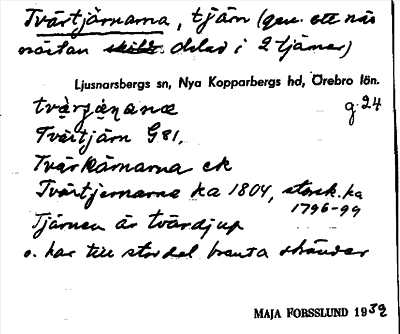 Tvärtjärnarna, tjärn (gen. ett näs
nästan delad i 2 tjärnar)
Ljusnarsbergs sn, Nya Kopparbergs hd, Örebro län.
g. 24
Tvärtjärn G 81,
Tvärkärnarna ek
Tvärtjernarne ka 1804, storsk. ka
1796-99
Tjärnen är tvärdjup
o. har till stor del branta stränder
MAJA FORSSLUND 1932